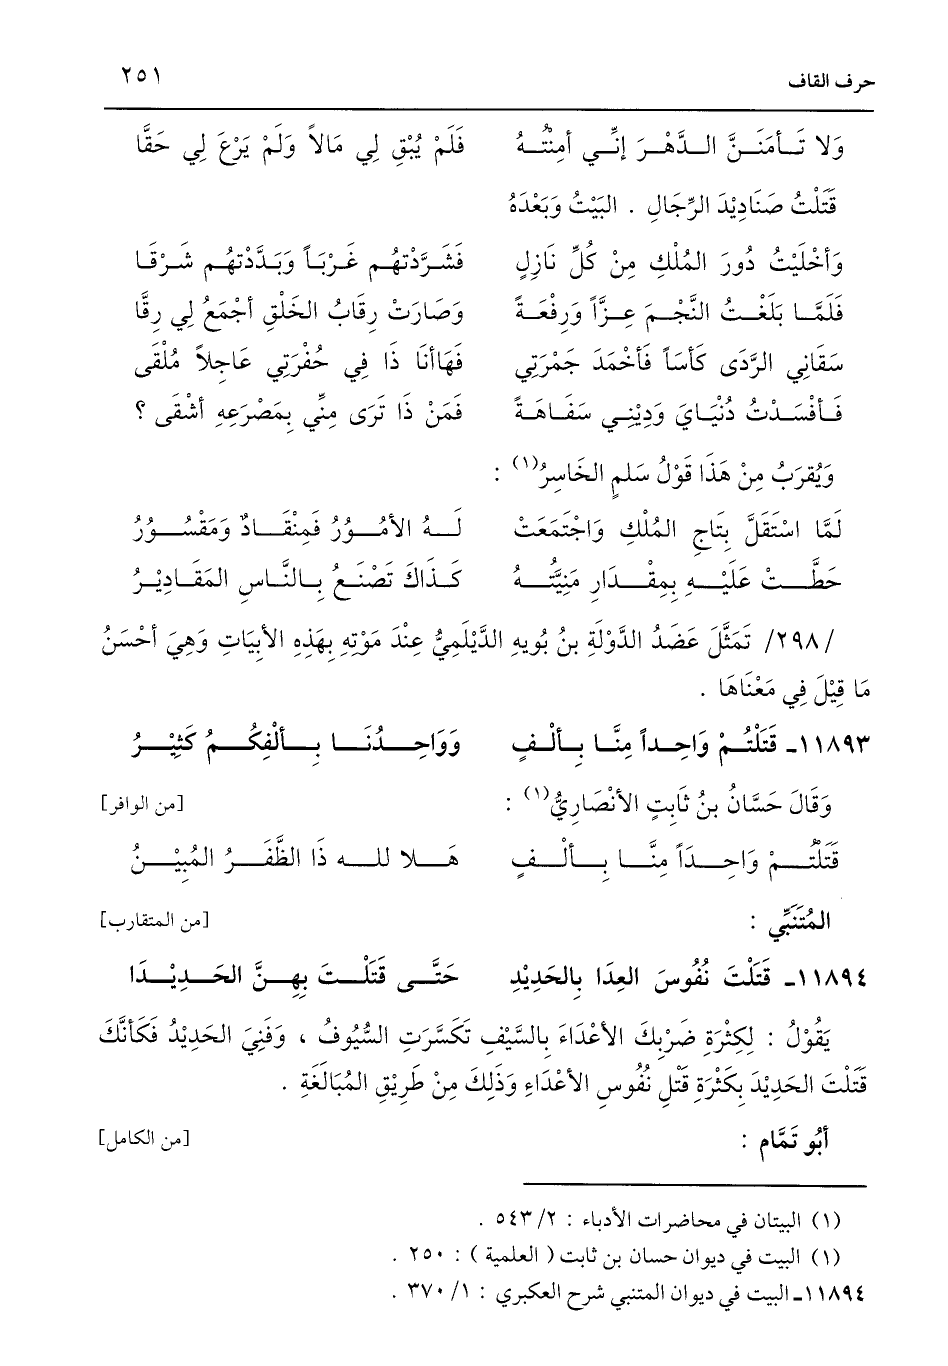 حرف القاف ٢٥١
وَلا تَـأمَنَـنَّ الـدَّهْـرَ إنِّـي أمِنْتُـهُ فَلَمْ يُبْقِ لِي مَالاً وَلَمْ يَرْعَ لِي حَقَّا
قَتَلْتُ صَنَادِيْدَ الرِّجَالِ . البَيْتُ وَبَعْدَهُ
وَأخْلَيْتُ دُورَ المُلْكِ مِنْ كُلِّ نَازِلٍ فَشَـرَّدْتهُـم غَـرْبَـاً وَبَـدَّدْتهُـم شَـرْقَـا
فَلَمَّـا بَلَغْـتُ النَّجْـمَ عِـزَّاً وَرِفْعَـةً وَصَارَتْ رِقَابُ الخَلْقِ أجْمَعُ لِي رِقَّا
سَقَانِي الرَّدَى كَأسَاً فَأخْمَدَ جَمْرَتِي فَهَاأنَا ذَا فِي حُفْرَتِي عَاجِلاً مُلْقَى
فَـأفْسَـدْتُ دُنْيَـايَ وَدِيْنِـي سَفَـاهَـةً فَمَنْ ذَا تَرَى مِنِّي بِمَصْرَعِهِ أشْقَى ؟
وَيُقرَبُ مِنْ هَذَا قَوْلُ سَلمٍ الخَاسِرُ(١) :
لَمَّا اسْتَقَلَّ بِتَاجِ المُلْكِ وَاجْتَمَعَتْ لَـهُ الأمُـوْرُ فَمِنْقَـادٌ وَمَقْسُـوْرُ
حَطَّـتْ عَلَيْـهِ بِمِقْـدَارٍ مَنِيَّتُـهُ كَـذَاكَ تَصْنَـعُ بِـالنَّاسِ المَقَـادِيْـرُ
/٢٩٨/ تَمَثَّلَ عَضَدُ الدَّوْلَةِ بنُ بُويهِ الدَّيْلَمِيُّ عِنْدَ مَوْتِهِ بِهَذِهِ الأبيَاتِ وَهِيَ أحْسَنُ
مَا قِيْلَ فِي مَعْنَاهَا .
١١٨٩٣ـ قَتَلْتُـمْ وَاحِـداً مِنَّـا بِـألْـفٍ وَوَاحِـدُنَـا بِـألْفِكُـمُ كَثِيْـرُ
وَقَالَ حَسَّانُ بنُ ثَابِتٍ الأنْصَارِيُّ(١) : [من الوافر]
قَتَلْتُـمْ وَاحِـدَاً مِنَّـا بِـألْـفٍ هَـلا للـه ذَا الظَّفَـرُ المُبِيْـنُ
المُتَنَبِّي : [من المتقارب]
١١٨٩٤ـ قَتَلْتَ نُفُوسَ العِدَا بِالحَدِيْدِ حَتَّـى قَتَلْـتَ بِهِـنَّ الحَـدِيْـدَا
يَقُوْلُ : لِكِثْرَةِ ضَرْبِكَ الأعْدَاءَ بِالسَّيْفِ تَكَسَّرَتِ السُّيُوفُ ، وَفَنِيَ الحَدِيْدُ فَكَأنَّكَ
قَتَلْتَ الحَدِيْدَ بِكَثْرَةِ قَتْلِ نُفُوسِ الأعْدَاءِ وَذَلِكَ مِنْ طَرِيْقِ المُبَالَغَةِ .
أبُو تَمَّام : [من الكامل]
(١) البيتان في محاضرات الأدباء : ٢/ ٥٤٣ .
(١) البيت في ديوان حسان بن ثابت ( العلمية ) : ٢٥٠ .
١١٨٩٤ـ البيت في ديوان المتنبي شرح العكبري : ١/ ٣٧٠ .